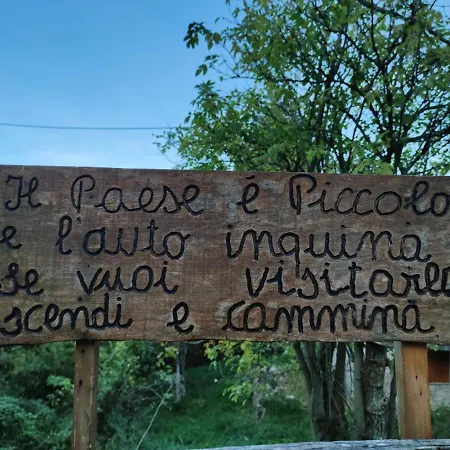 Il Paese é Piccolo
e l'auto inquina
se vuoi visitarlo
scendi e cammina